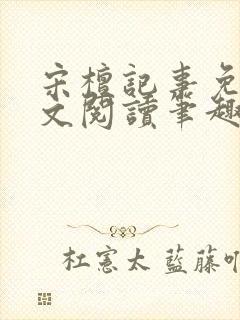 宋檀記事免
文閱讀筆趣
杜憲太 藍藤吖